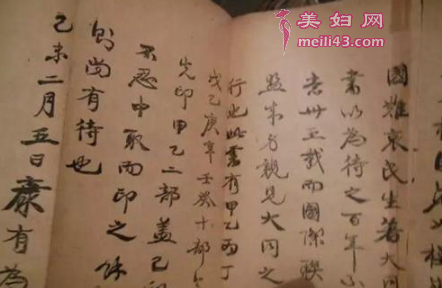 美妇网
meili43.com
國難哀民生著大同
書以為待之百年不
意卅五載而國際聯
盟成身親見大同之
行也此書有甲乙丙丁
戊己庚辛壬癸十部
先印甲乙二部蓋已印
不忍中取而印之餘
則尚有待也
己未二月五日康有為